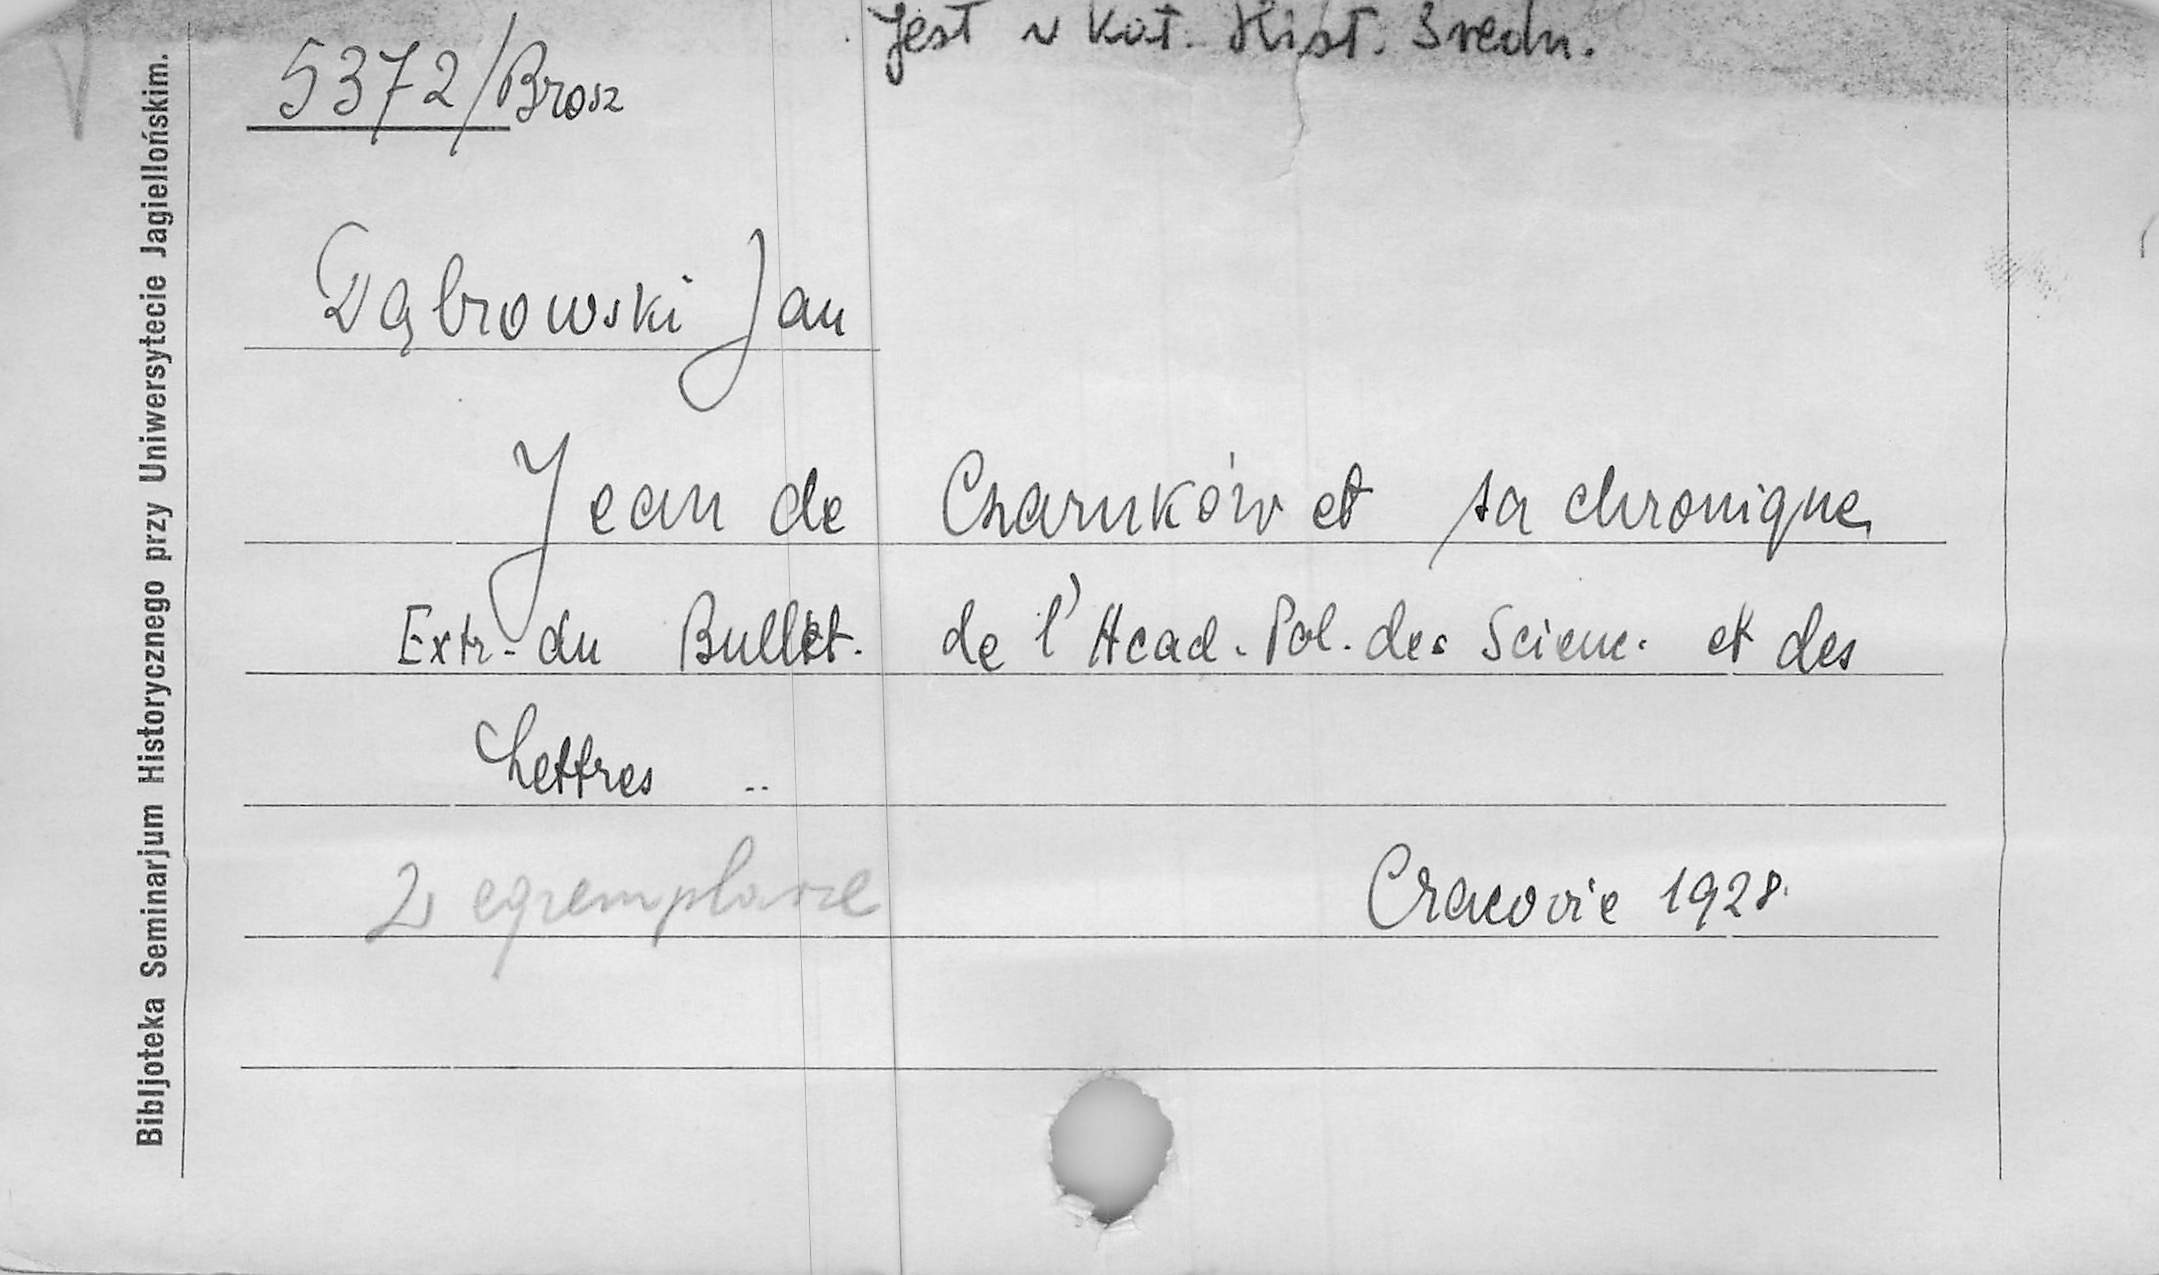 Jest w Kat. Hist. Średn.
5372/Brosz
Dąbrowski Jan
Jean de Czarnków et sa chronique
Extr. du Bullet. de l'Acad. Pol. des Scienc. et des
Lettres ..
2 egzemplarze
Cracovie 1928.
Bibljoteka Seminarjum Historycznego przy Uniwersytecie Jagiellońskim.